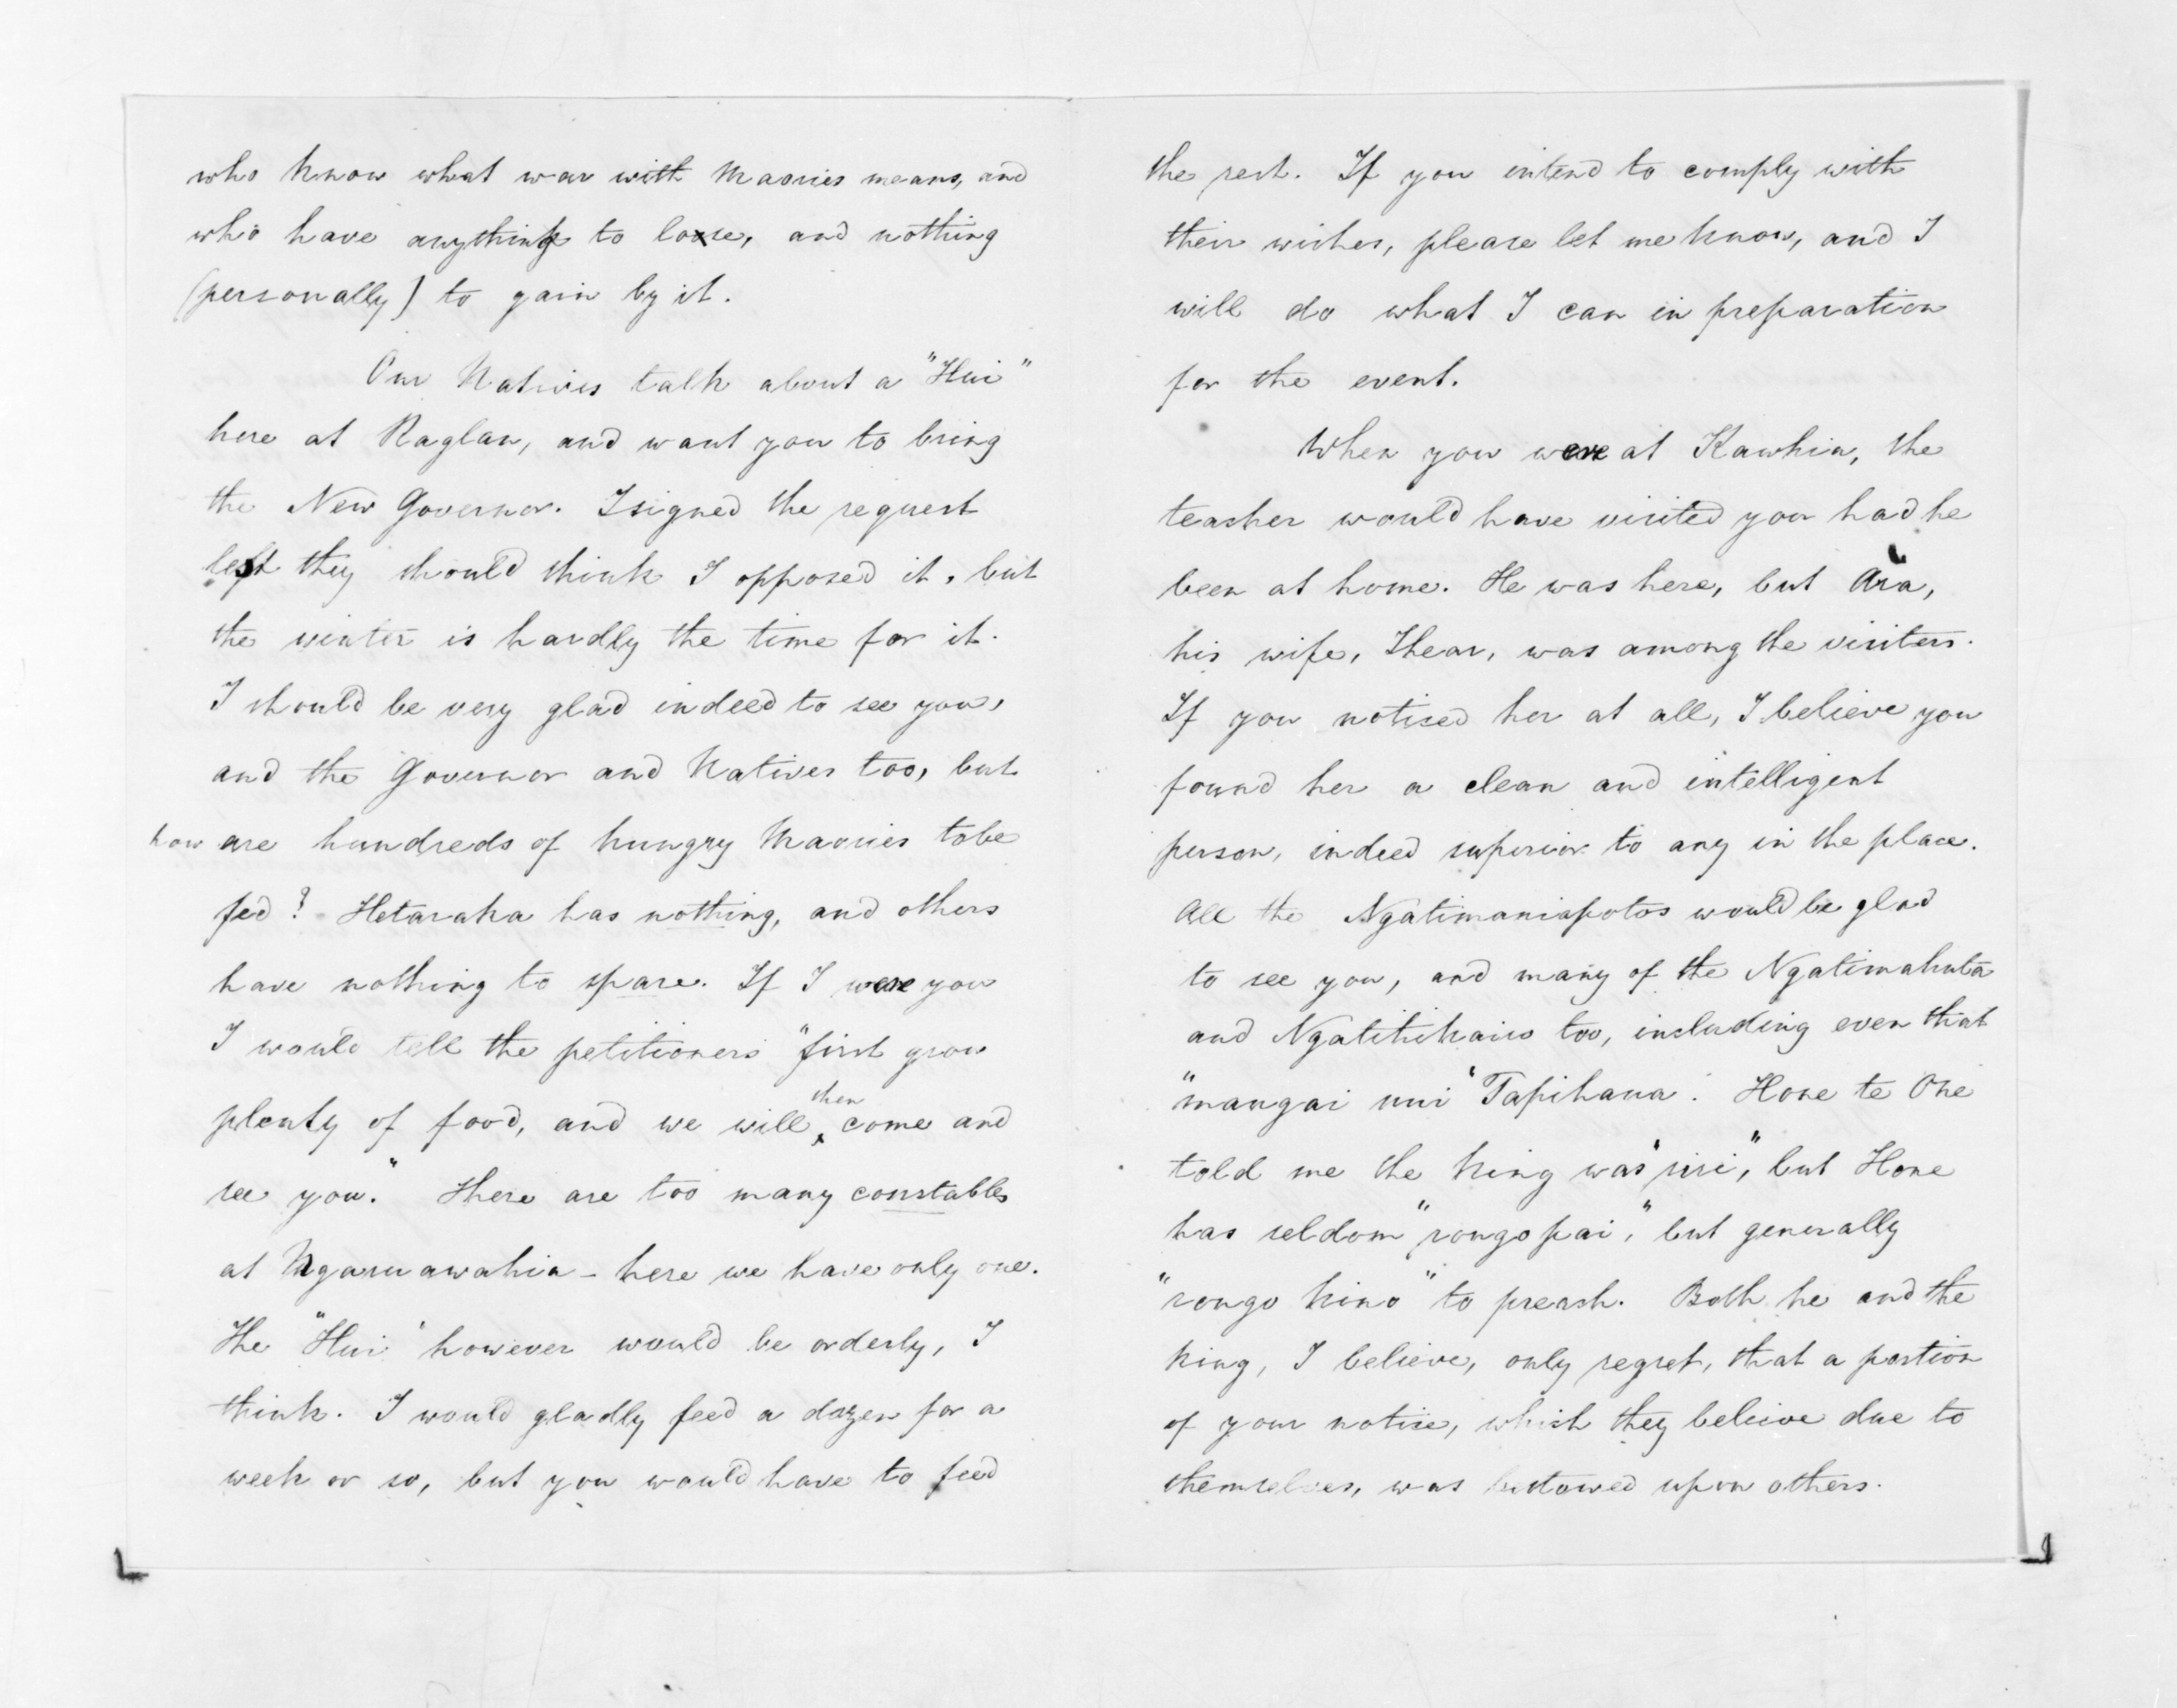 who know what war with Maories means, and
who have anything to loose, and nothing
(personally) to gain by it.
Our Natives talk about a "Hui"
here at Raglan, and want you to bring
the New Governor. I signed the request
lest they should think I opposed it, but
the winter is hardly the time for it.
I should be very glad indeed to see you,
and the Governor and Natives too, but
how are hundreds of hungry Maories to be
fed? Hetaraka has nothing, and others
have nothing to spare. If I were you
I would tell the petitioners "first grow
plenty of food, and we will then come and
see you." There are too many constables
at Ngaruawahia - here we have only one.
The "Hui" however would be orderly, I
think. I would gladly feed a dozen for a
week or so, but you would have to feed
the rest. If you intend to comply with
their wishes, please let me know, and I
will do what I can in preparation
for the event.
When you were at Kawhia, the
teacher would have visited you had he
been at home. He was here, but Ara,
his wife, I hear, was among the visiters.
If you noticed her at all, I believe you
found her a clean and intelligent
person, indeed superior to any in the place.
All the Ngatimaniapotos would be glad
to see you, and many of the Ngatimahuta
and Ngatihikairo too, including even that
"mangai nui" Tapihana. Hone te One
told me the King was "riri", but Hone
has seldom "rongo pai," but generally
"rongo kino" to preach. Both he and the
King, I believe, only regret, that a portion
of your notice, which they believe due to
themselves, was bestowed upon others.